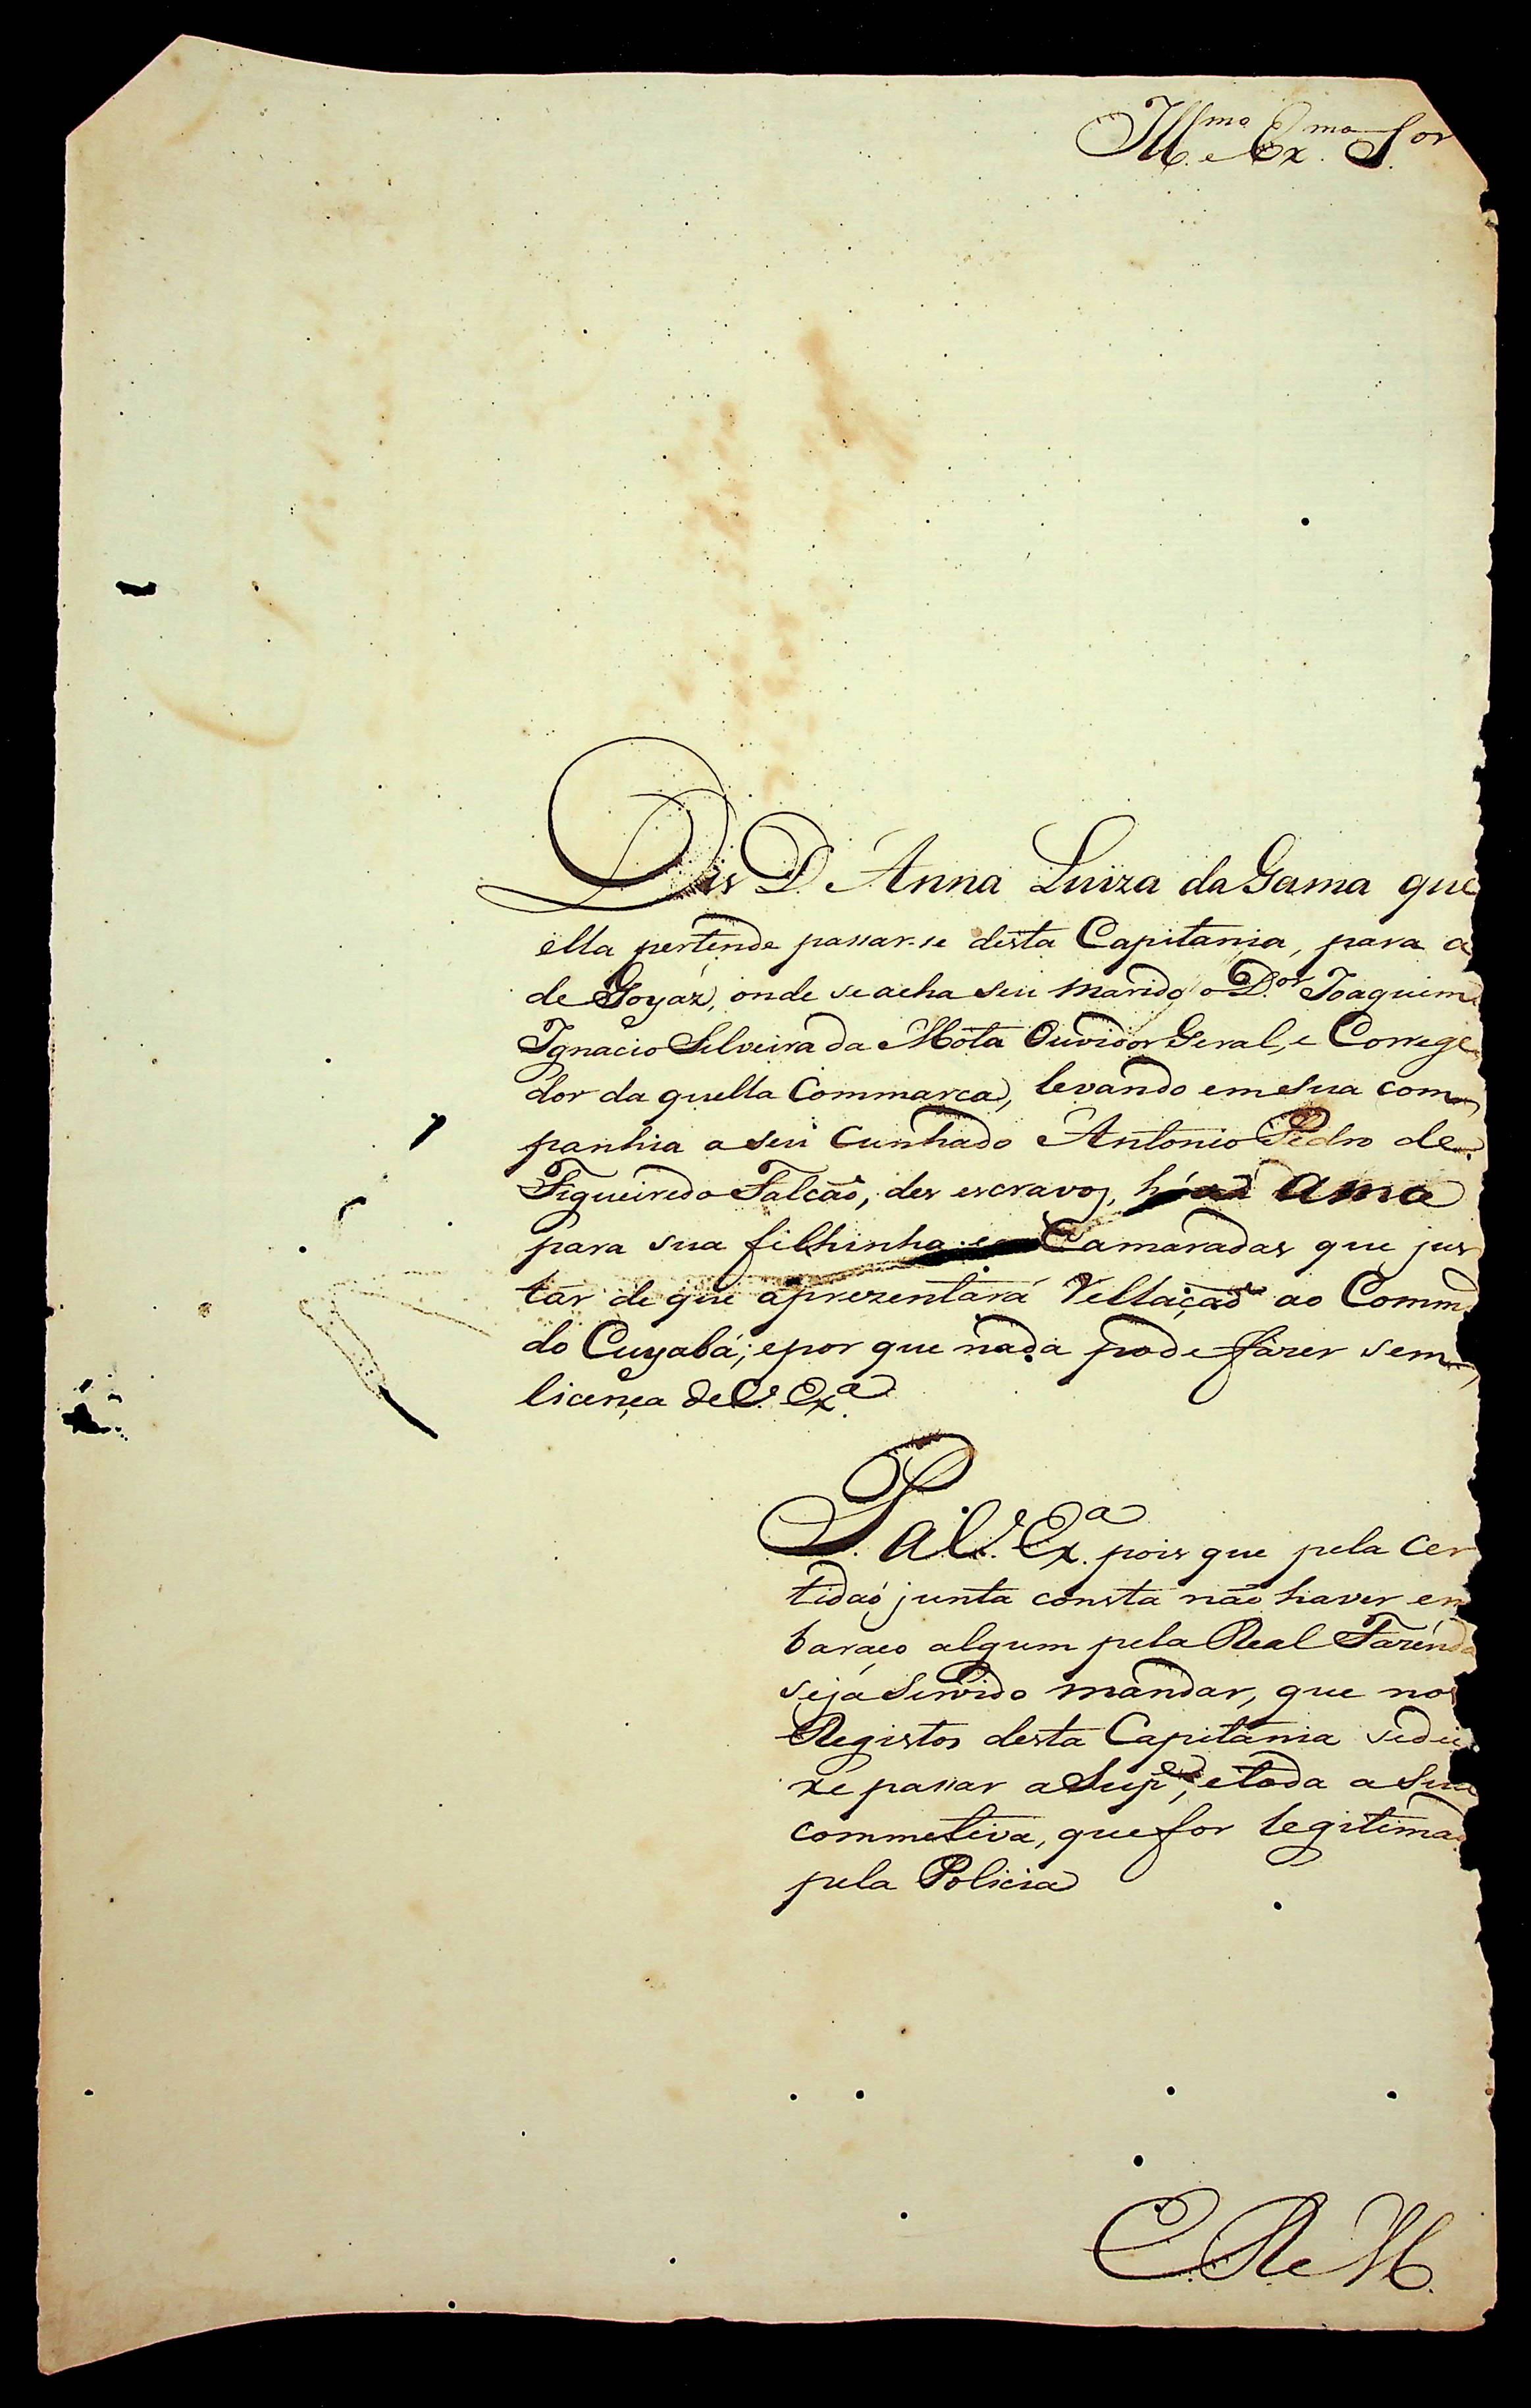 Ill.mo e Ex.mo S.or
Dis D. Anna Luiza da Gama que
ella pertende passar-se desta Capitania, para a
de Goyáz, onde se acha seu marido o D.or Joaquim
Ignacio Silveira da Mota Ouvidor Geral, e Correge
dor da quella Commarca, levando em sua com
panhia a seu Cunhado Antonio Pedro de
Figueiredo Falcaõ, des escravos, húa ama
para sua filhinha e Camaradas que jus
tar de que aprezentará Rellaçaõ ao Comm
do Cuyabá; e por que nada pode fazer sem
licença de V. Ex.a
P. a V. Ex.a pois que pela Cer
tidaõ junta consta não haver em
baraço algum pela Real Fazenda
seja servido mandar, que nos
Registos desta Capitania se dei
xe passar a Sup.e, e toda a Sua
commetiva, que for legitimad
pela Policia
E R e M.